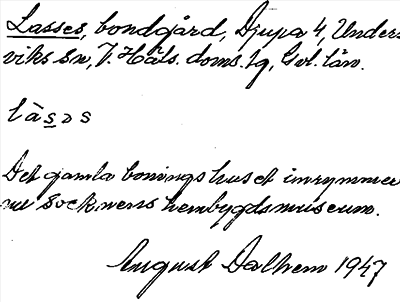 Lasses, bondgård, Djupa 4, Unders
viks sn, V. Häls. doms. lg, Gvl. län.
làsəs
Det gamla boningshuset inrymmer
nu socknens hembygdsmuseum.
August Dalhem 1947